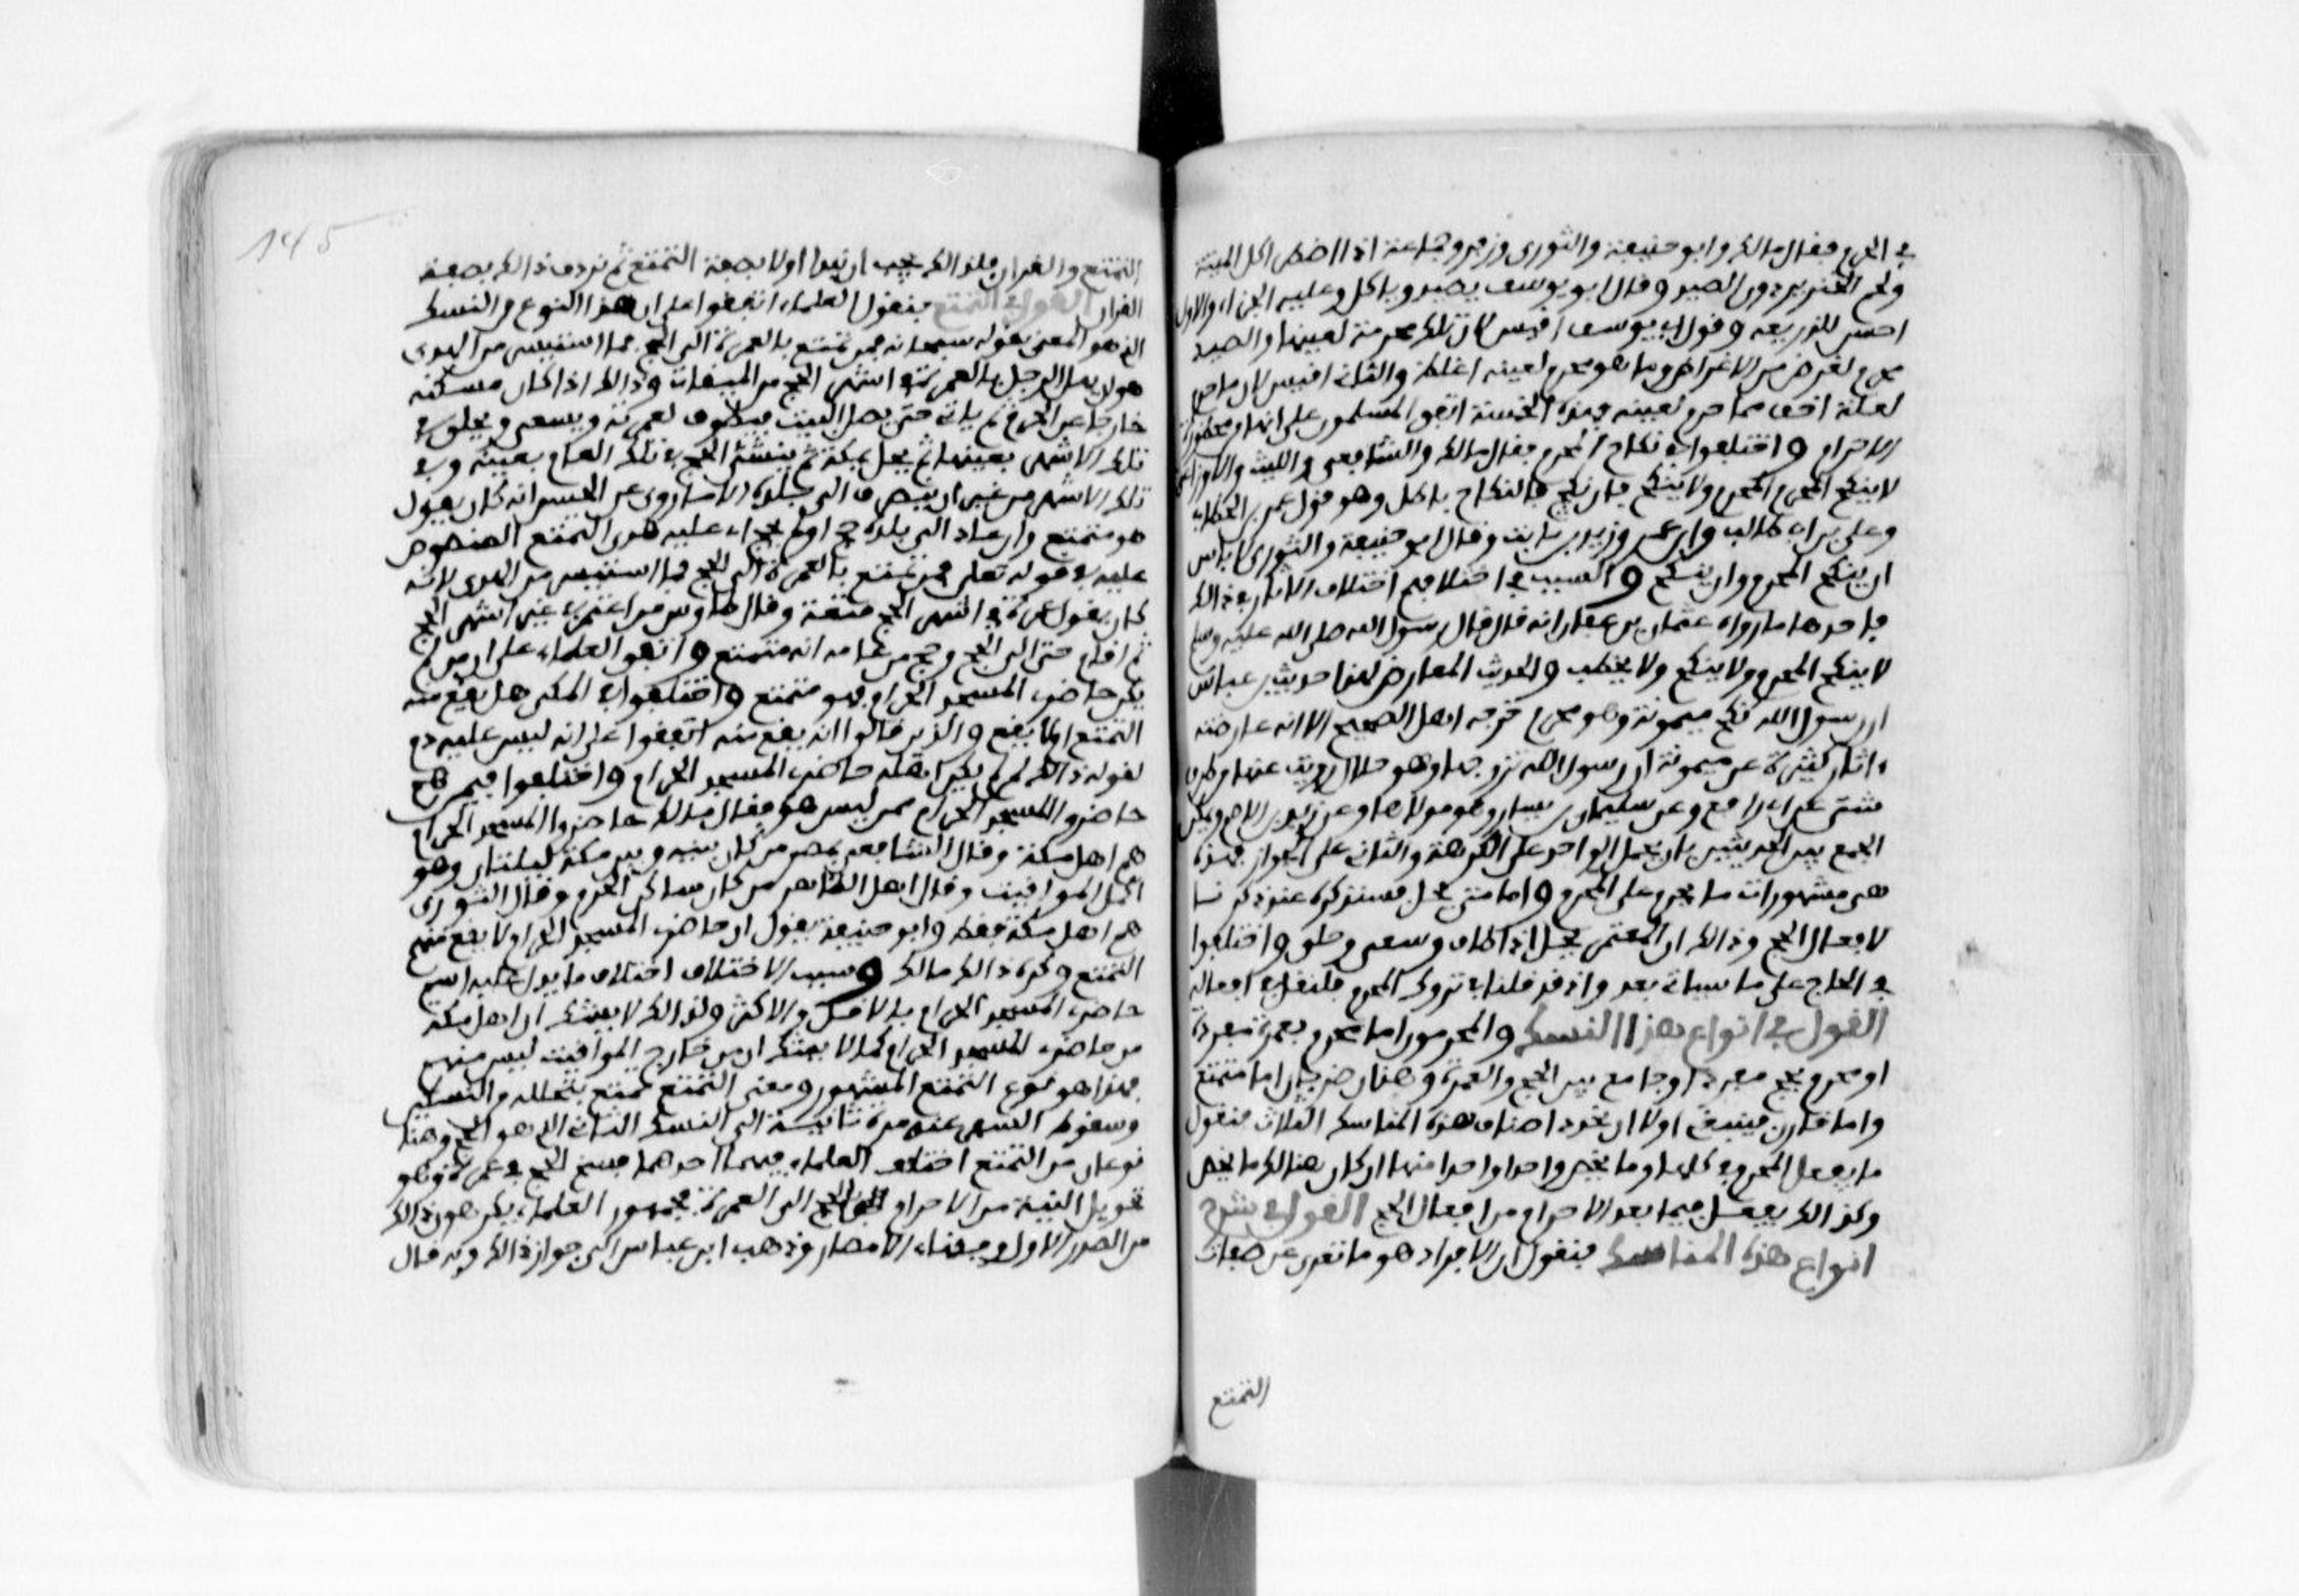 في الحرم فقال مالك وابو حنيفة والثوري وزفر وجماعة اذا اضطر اكل الميتة
ولحم الخنزير دون الصيد وقال ابو يوسف يصيد وياكل وعليه الجزاء والاول
احسن للذريعة وقول ابي يوسف اقيس لان تلك محرمة لعينها والصيد
محرم لغرض من الاغراض وما هو محرم لعينه اغلظ والثاني اقيس لان ما حرم
لعلة اخف مما حرم لعينه فهذه الخمسة اتفق المسلمون على انها من محظورات
الاحرام واختلفوا في نكاح المحرم فقال مالك والشافعي والليث والاوزاعي
لا ينكح المحرم ولا ينكح فان نكح فالنكاح باطل وهو قول عمر بن الخطاب
وعلي بن ابي طالب وابن عمر وزيد بن ثابت وقال ابو حنيفة والثوري لا باس
ان ينكح المحرم وان ينكح والسبب في اختلافهم اختلاف الاثار في ذالك
فاحدها ما رواه عثمان بن عفان انه قال قال رسول الله صلى الله عليه وسلم
لا ينكح المحرم ولا ينكح ولا يخطب والحديث المعارض لهذا حديث بن عباس
ان رسول الله نكح ميمونة وهو محرم خرجه اهل الصحيح الا انه عارضته
اثار كثيرة عن ميمونة ان رسول الله تزوجها وهو حلال رويت عنها من طرق
شتى عن ابي رافع وعن سليمان بن يسار وهو مولاها وعن زيد بن الاصم ويمكن
الجمع بين الحديثين بان يحمل الواحد على الكرهة والثاني على الجواز فهذه
هي مشهورات ما يحرم على المحرم واما متى يحل فسنذكره عند ذكرنا
لافعال الحج وذالك ان المعتمر يحل اذا طاف وسعى وحلق واختلفوا
في الحاج على ما سياتي بعد واذ قد قلنا في تروك المحرم فلنقل في افعاله
القول في انواع هذا النسك والمحرمون اما محرم بعمرة مفردة
او محرم بحج مفرد او جامع بين الحج والعمرة وهذان ضربان اما متمتع
واما قارن فينبغي اولا ان نجرد اصناف هذه المناسك الثلاث فنقول
ما يفعل المحرم في كلها وما يخص واحدا واحدا منها ان كان هنالك ما يخص
وكذالك يفعل فيما بعد الاحرام من افعال الحج القول في شرح
انواع هذه المناسك فنقول ان الافراد هو ما تعرى عن صفات
التمتع
145
التمتع والقران فلذالك يجب ان نبدا اولا بصفة التمتع ثم نردف ذالك بصفة
القران القول في التمتع فنقول العلماء اتفقوا على ان هذا النوع من النسك
الذي هو المعني بقوله سبحانه فمن تمتع بالعمرة الى الحج فما استيسر من الهدي
هو ان يهل الرجل بالعمرة في اشهر الحج من الميقات وذالك اذا كان مسكنه
خارجا عن الحرم ثم ياتي حتى يصل البيت فيطوف لعمرته ويسعى ويحلق في
تلك الاشهر بعينها ثم يحل بمكة ثم ينشئ الحج في تلك العام بعينه وفي
تلك الاشهر من غير ان ينصرف الى بلده الا ما روي عن الحسن انه كان يقول
هو متمتع وان عاد الى بلده حج اولم يحج اي عليه هدي التمتع المنصوص
عليه في قوله تعلى فمن تمتع بالعمرة الى الحج فما استيسر من الهدي لانه
كان يقول عمرة في اشهر الحج متعة وقال طاوس من اعتمر في غير اشهر الحج
ثم اقام حتى الى الحج وحج من عامه انه متمتع واتفق العلماء على ان من لم
يكن حاضري المسجد الحرام فهو متمتع واختلفوا في المكي هل يقع منه
التمتع ام لا يقع والذين قالوا انه يقع منه اتفقوا على انه ليس عليه دم
لقوله ذالك لمن لم يكن اهله حاضري المسجد الحرام واختلفوا فيمن هم
حاضروا المسجد الحرام ممن ليس هو فقال مالك حاضروا المسجد الحرام
هم اهل مكة وقال الشافعي بمصر من كان بينه وبين مكة ليلتان وهو
اكمل المواقيت وقال اهل الظاهر من كان ساكن الحرم وقال الثوري
هم اهل مكة فقط وابو حنيفة يقول ان حاضري المسجد الحرام لا يقع منهم
التمتع وكره ذالك مالك وسبب الاختلاف اختلاف ما يدل عليه اسم
حاضري المسجد الحرام بالاقل والاكثر ولذالك لا يشك ان اهل مكة
من حاضري المسجد الحرام كما لا يشك ان من خارج المواقيت ليس منهم
فهذا هو نوع التمتع المشهور ومعنى التمتع تمتع بتحلله من النسك
وسقوط السفر عنه مرة ثانية الى النسك الثاني الذي هو الحج وهنا
نوعان من التمتع اختلف العلماء فيهما احدهما فسخ الحج في عمرة وهو
تحويل النية من الاحرام بالحج الى العمرة فجمهور العلماء يكرهون ذالك
من الصدر الاول وفقهاء الامصار وذهب ابن عباس الى جواز ذالك وبه قال